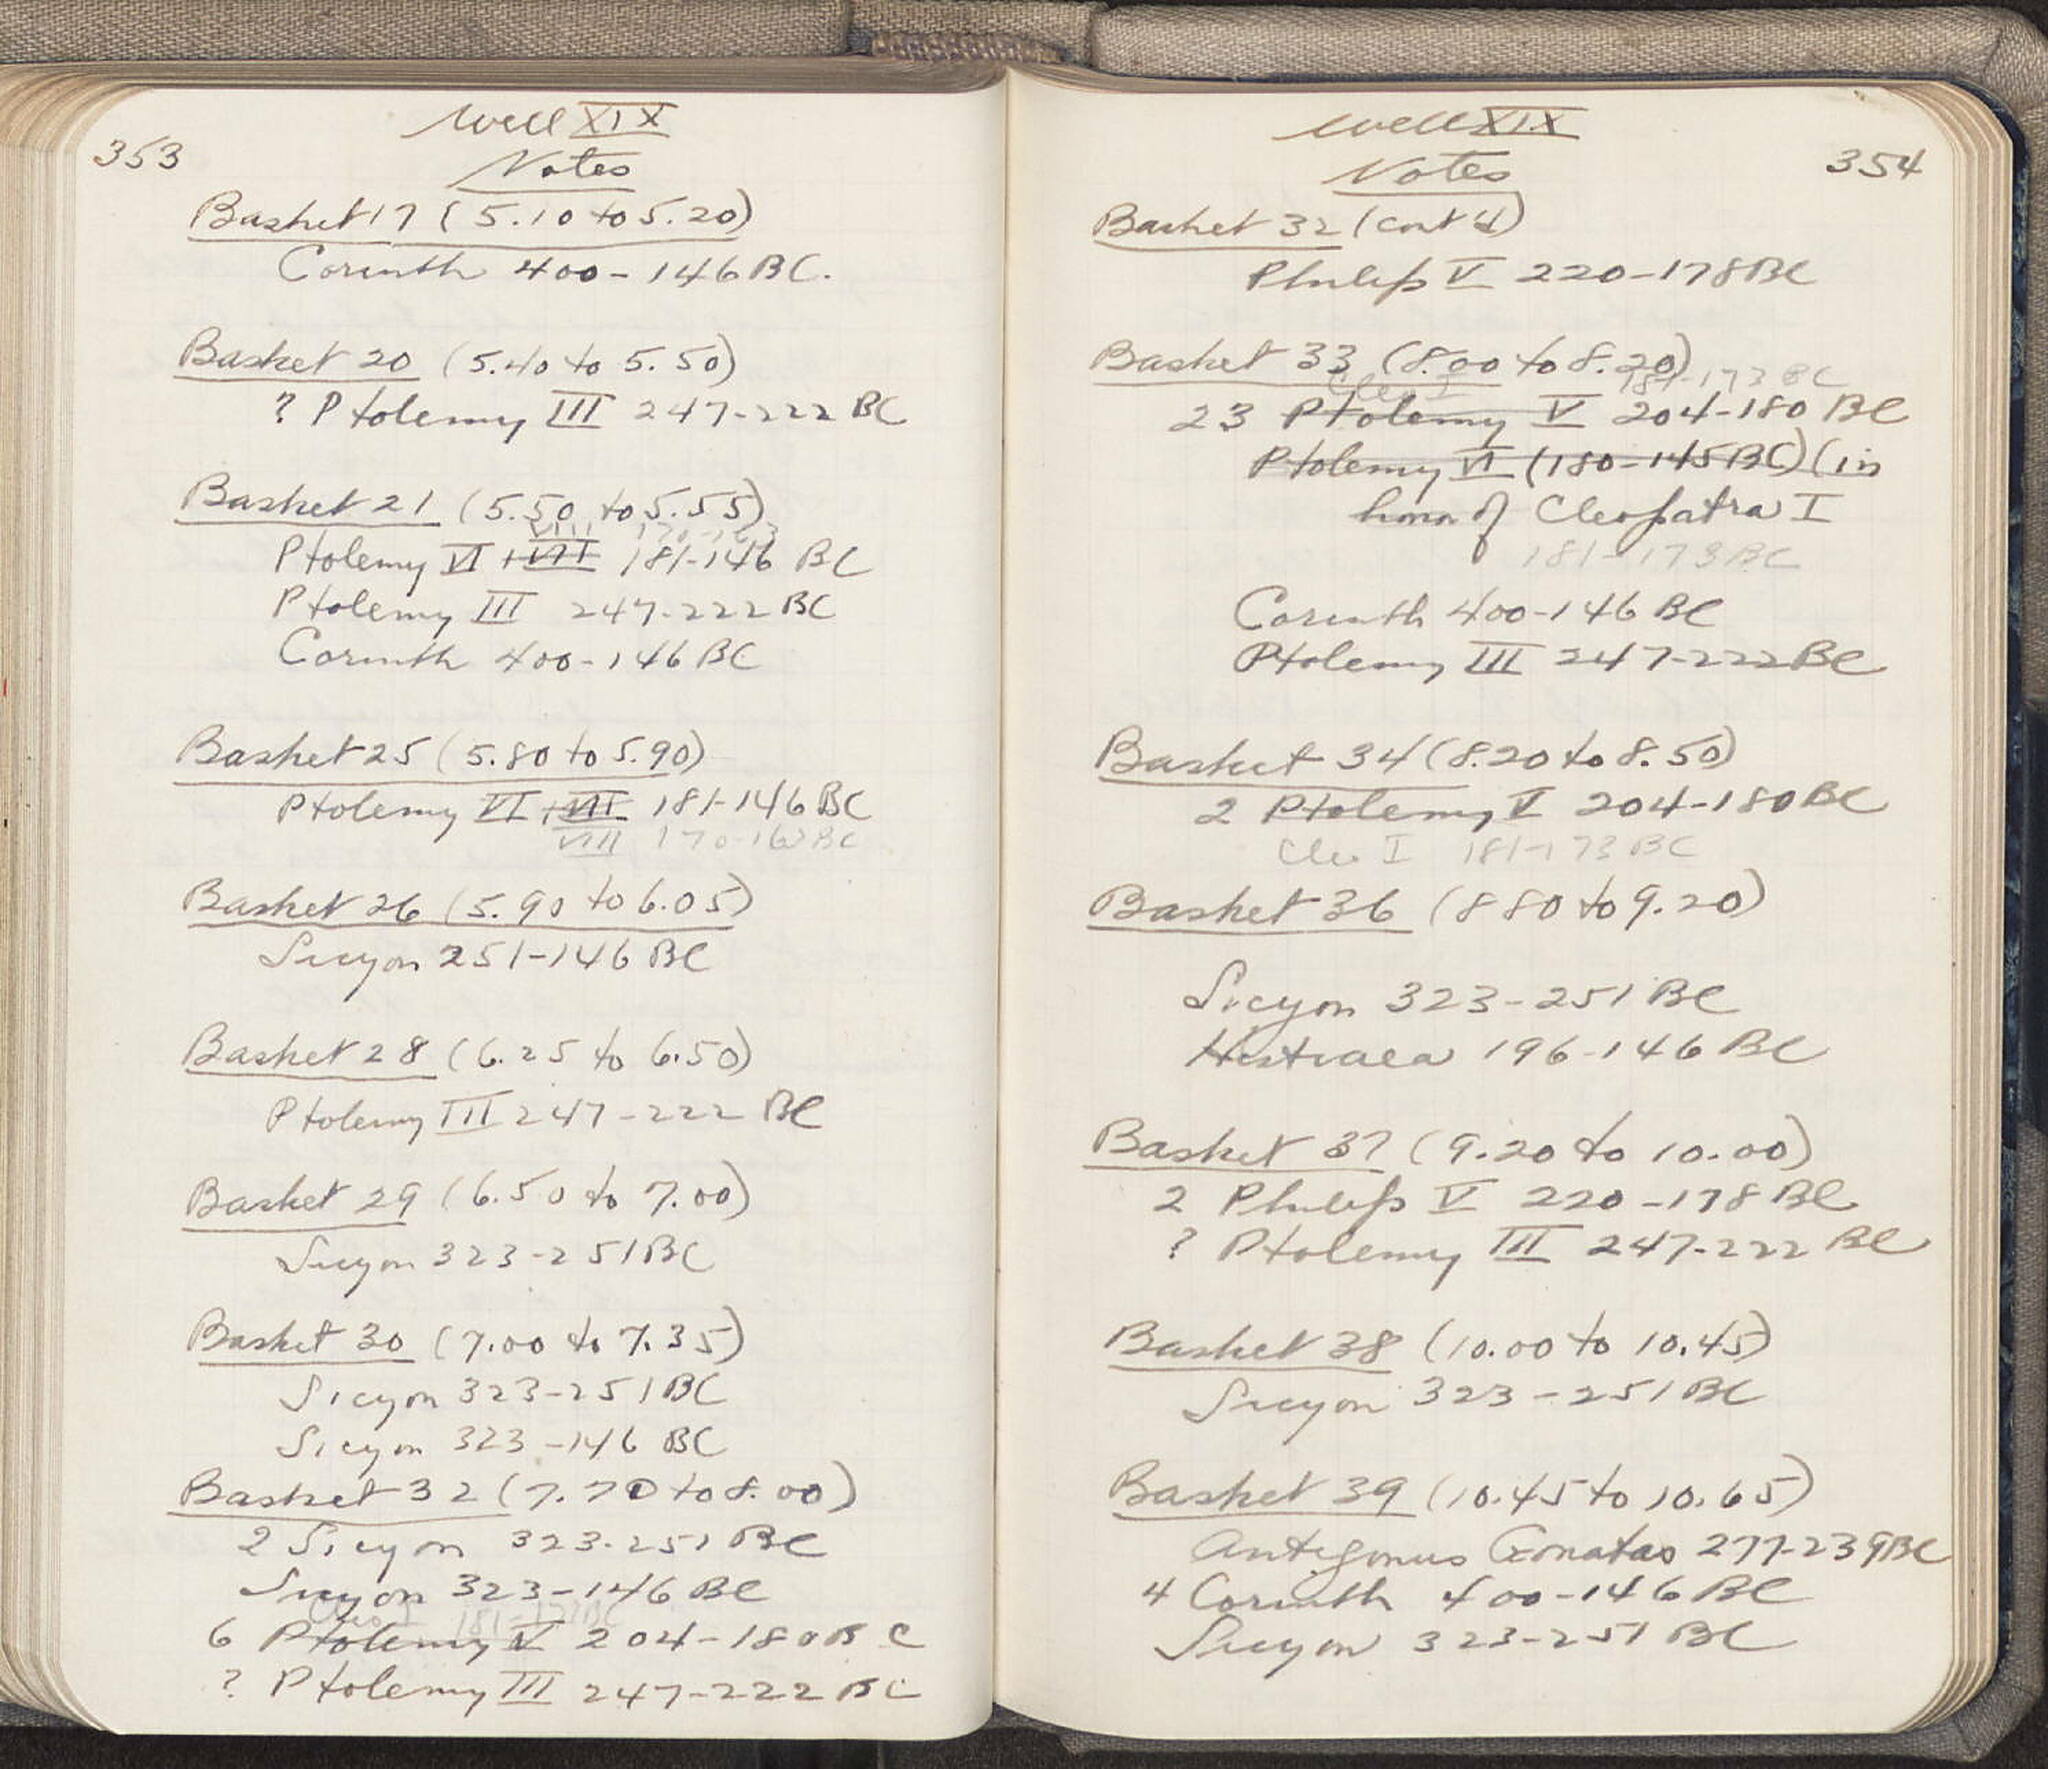 353
Well XIX
Notes
Basket 17 (5.10 to 5.20)
Corinth 400-146 BC.
Basket 20 (5.40 to 5.50)
? Ptolemy III 247-222 BC
Basket 21 (5.50 to 5.55)
VIII 170-163
Ptolemy VI + VII 181-146 BC
Ptolemy III 247-222 BC
Corinth 400-146 BC
Basket 25 (5.80 to 5.90)
Ptolemy VI + VII 181-146 BC
VIII 170-163 BC
Basket 26 (5.90 to 6.05)
Sicyon 251-146 BC
Basket 28 (6.25 to 6.50)
Ptolemy III 247-222 BC
Basket 29 (6.50 to 7.00)
Sicyon 323-251 BC
Basket 30 (7.00 to 7.35)
Sicyon 323-251 BC
Sicyon 323-146 BC
Basket 32 (7.70 to 8.00)
2 Sicyon 323-251 BC
Sicyon 323-146 BC
Cleo I 181-173 BC
6 Ptolemy V 204-180 BC
? Ptolemy III 247-222 BC
Well XIX
354
Notes
Basket 32 (cont'd)
Philip V 220-178 BC
Basket 33 (8.00 to 8.20)
Cleo I 181-173 BC
23 Ptolemy V 204-180 BC
Ptolemy VI (180-145 BC) (in
honor of Cleopatra I
181-173 BC
Corinth 400-146 BC
Ptolemy III 247-222 BC
Basket 34 (8.20 to 8.50)
2 Ptolemy V 204-180 BC
Cleo I 181-173 BC
Basket 36 (8 80 to 9.20)
Sicyon 323-251 BC
Histiaea 196-146 BC
Basket 37 (9.20 to 10.00)
2 Philip V 220-178 BC
? Ptolemy III 247-222 BC
Basket 38 (10.00 to 10.45)
Sicyon 323-251 BC
Basket 39 (10.45 to 10.65)
Antigonus Gonatas 277-239 BC
4 Corinth 400-146 BC
Sicyon 323-251 BC